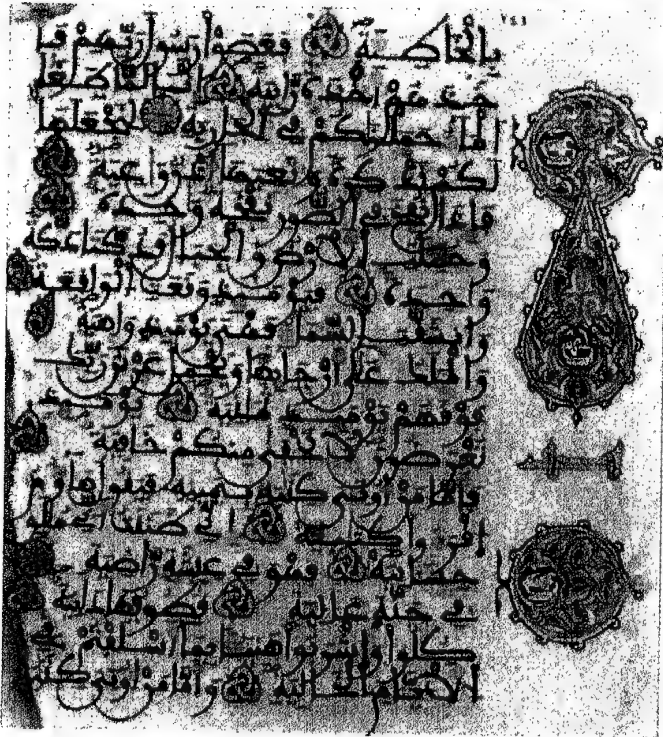 بِالْخَاطِئَةِ فَعَصَوْا رَسُولَ رَبِّهِمْ فَأَ
خَذَهُمْ أَخْذَةً رَّابِيَةً إِنَّا لَمَّا طَغَا
الْمَاءُ حَمَلْنَاكُمْ فِي الْجَارِيَةِ لِنَجْعَلَهَا
لَكُمْ تَذْكِرَةً وَتَعِيَهَا أُذُنٌ وَاعِيَةٌ
فَإِذَا نُفِخَ فِي الصُّورِ نَفْخَةٌ وَاحِدَةٌ
وَحُمِلَتِ الْأَرْضُ وَالْجِبَالُ فَدُكَّتَا دَكَّةً
وَاحِدَةً فَيَوْمَئِذٍ وَقَعَتِ الْوَاقِعَةُ
وَانْشَقَّتِ السَّمَاءُ فَهِيَ يَوْمَئِذٍ وَاهِيَةٌ
وَالْمَلَكُ عَلَى أَرْجَائِهَا وَيَحْمِلُ عَرْشَ رَبِّكَ
فَوْقَهُمْ يَوْمَئِذٍ ثَمَنِيَةٌ يَوْمَئِذٍ
تُعْرَضُونَ لَا تَخْفَى مِنْكُمْ خَافِيَةٌ
فَأَمَّا مَنْ أُوتِيَ كِتَبَهُ بِيَمِينِهِ فَيَقُولُ هَاؤُمُ
اقْرَءُوا كِتَبِيَهْ إِنِّي ظَنَنْتُ أَنِّي مُلَقٍ
حِسَابِيَهْ فَهُوَ فِي عِيشَةٍ رَّاضِيَةٍ
فِي جَنَّةٍ عَالِيَةٍ قُطُوفُهَا دَانِيَةٌ
كُلُوا وَاشْرَبُوا هَنِيئًا بِمَا أَسْلَفْتُمْ فِي
الْأَيَّامِ الْخَالِيَةِ وَأَمَّا مَنْ أُوتِيَ كِتَبَهُ